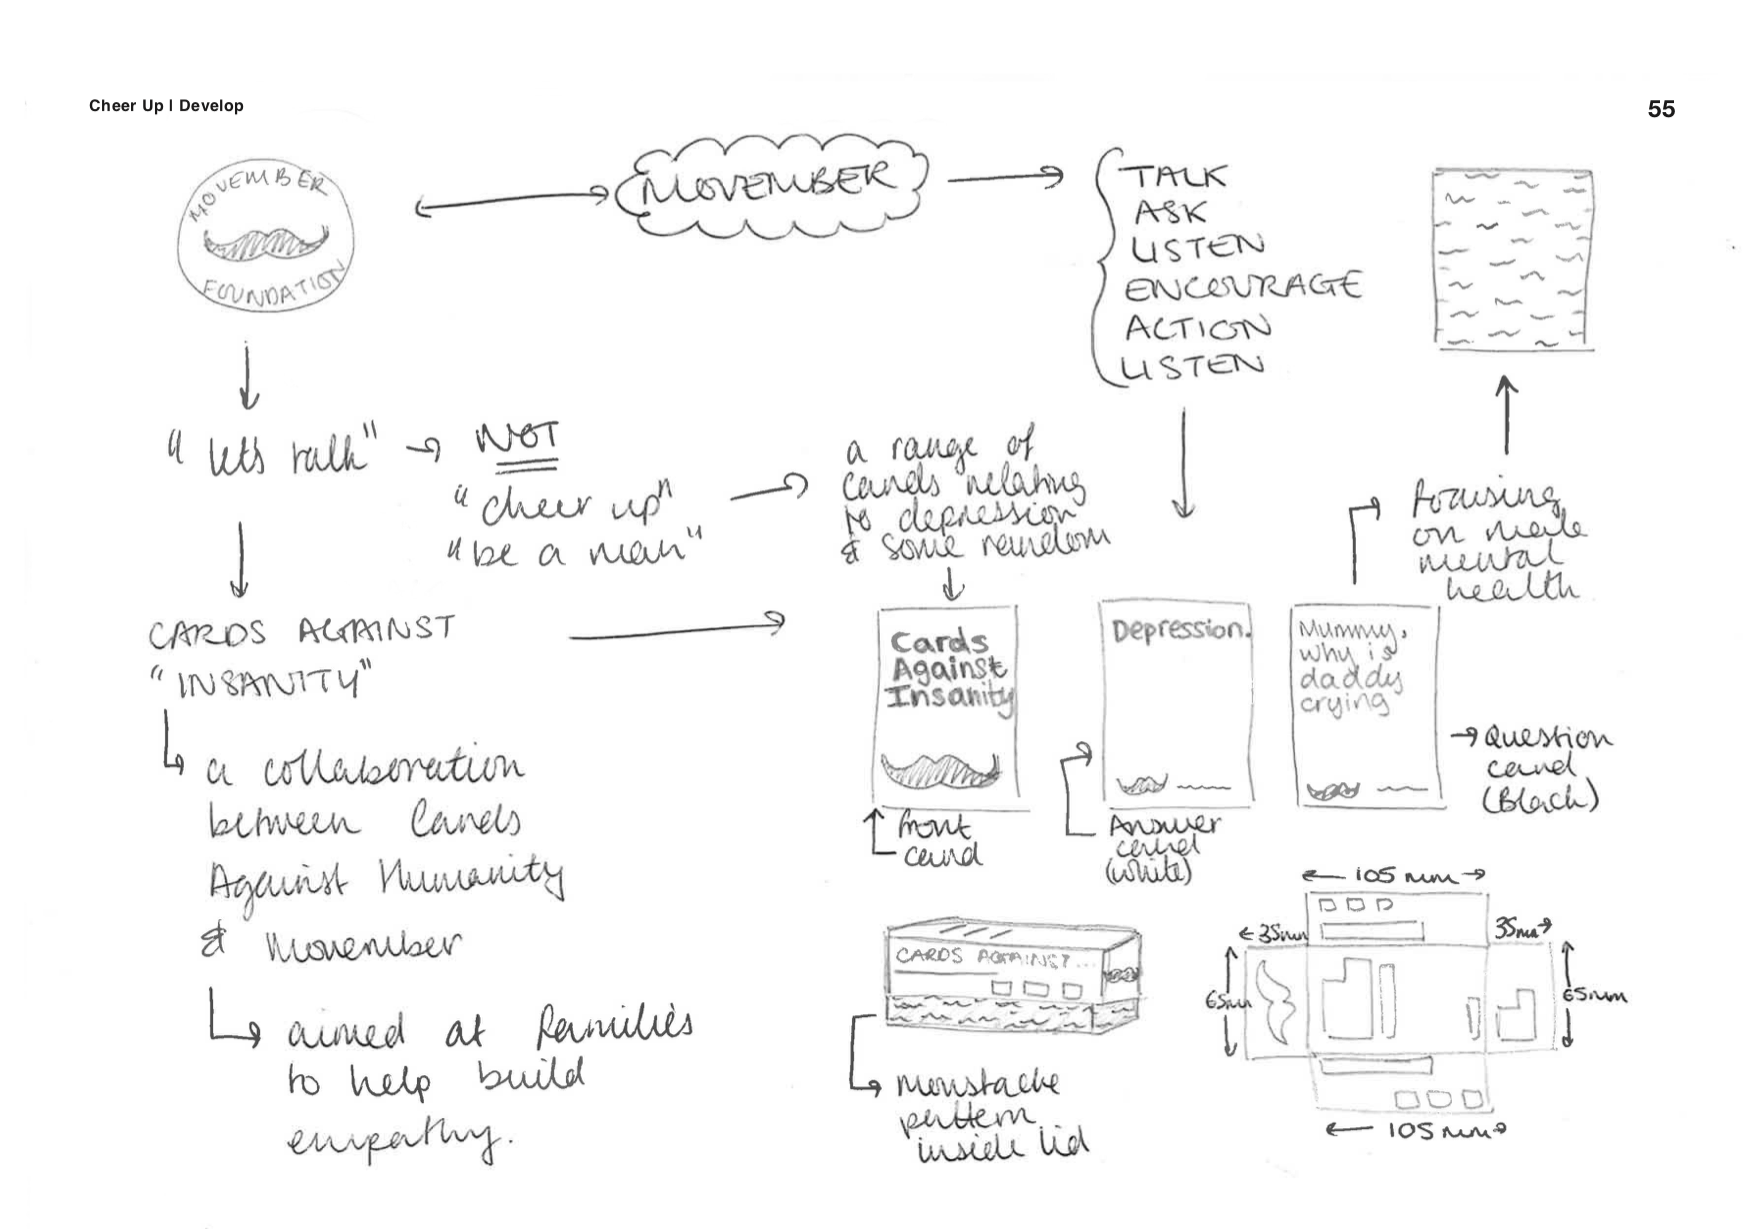 Cheer Up | Develop
55
MOVEMBER
FOUNDATION
MOVEMBER
TALK
ASK
LISTEN
ENCOURAGE
ACTION
LISTEN
"let's talk"
NOT
"cheer up"
"be a man"
a range of
cards relating
to depression
& some random
focusing
on male
mental
health
CARDS AGAINST
"INSANITY"
a collaboration
between Cards
Against Humanity
& Movember
aimed at families
to help build
empathy.
Cards
Against
Insanity
front
card
Depression.
Answer
card
(white)
Mummy,
why is
daddy
crying
Question
card
(Black)
CARDS AGAINST...
moustache
pattern
inside lid
105 mm
35mm
35mm
65mm
65mm
105 mm